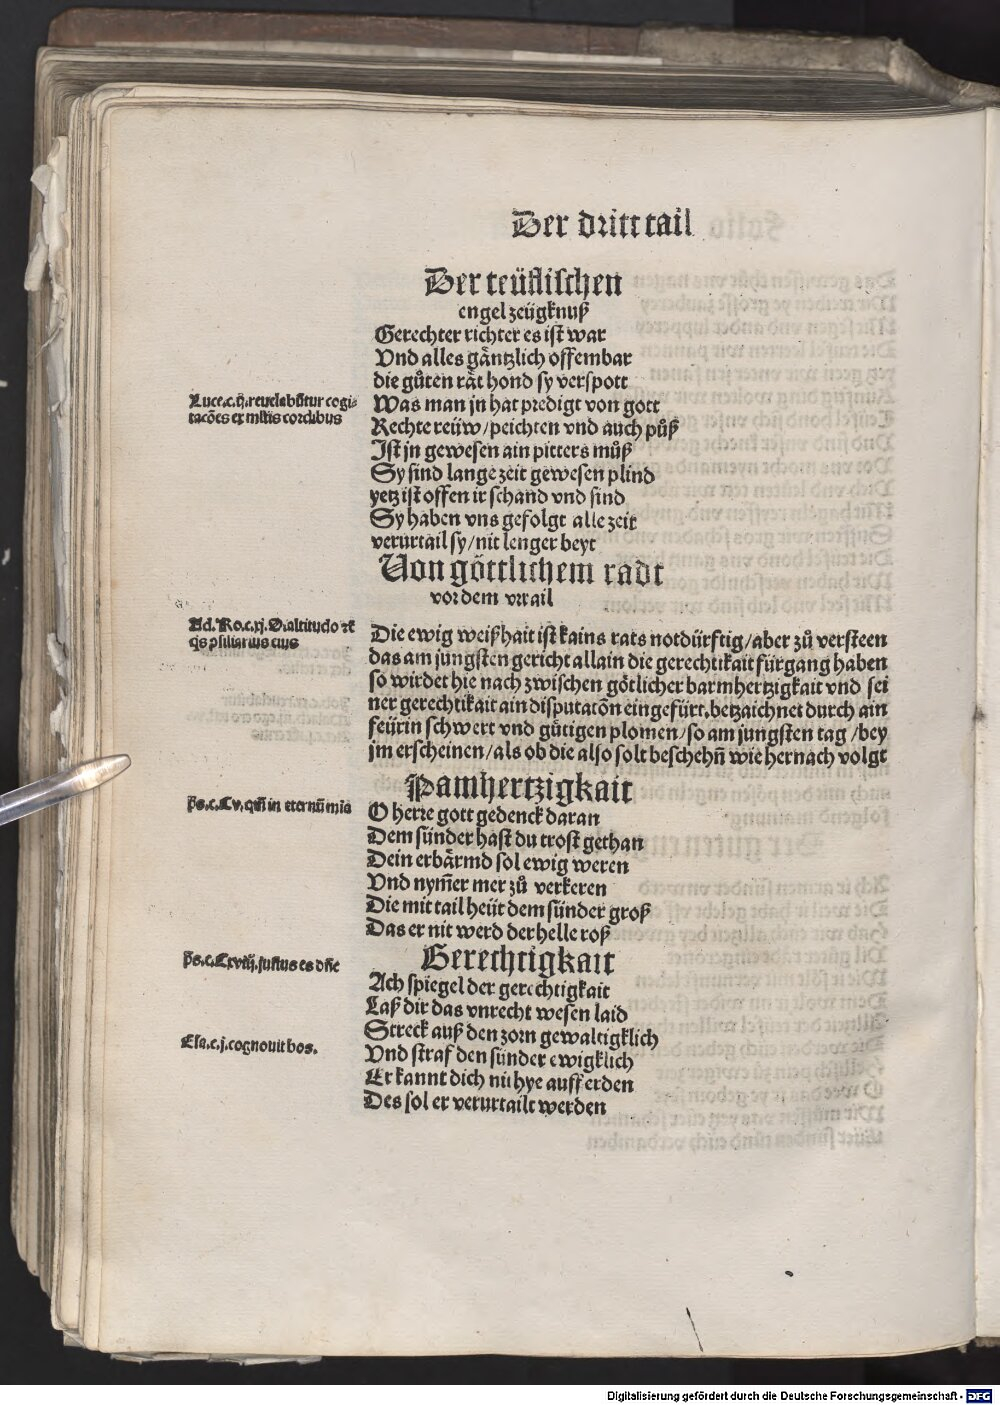 Der dritt tail
Der teüflischen
engel zeügknuß
Gerechter richter es ist war
Vnd alles gäntzlich offembar
die gůten rät hond sy verspott
Luce.c.ij.reuelabūtur cogi-
tacões ex multis cordibus
Was man jn hat predigt von gott
Rechte reüw/peichten vnd auch půß
Ist jn gewesen ain pitters můß
Sy sind lange zeit gewesen plind
yetz ist offen ir schand vnd sind
Sy haben vns gefolgt alle zeit
verurtail sy/nit lenger beyt
Von göttlichem radt
vor dem vrtail
Ad.Ro.c.xj.O altitudo
qis psiliarius eius
Die ewig weißhait ist kains rats notdürftig/aber zů versteen
das am jungsten gericht allain die gerechtikait fürgang haben
so wirdet hie nach zwischen götlicher barmhertzigkait vnd sei
ner gerechtikait ain disputacōn eingefürt.betzaichnet durch ain
feürin schwert vnd gütigen plomen/so am jungsten tag/bey
jm erscheinen/als ob die also solt beschehn̄ wie hernach volgt
Pamhertzigkait
p̄s.c.Cv.qm̄ in eternū mia
O herre gott gedenck daran
Dem sünder hast du trost gethan
Dein erbärmd sol ewig weren
Vnd nym̄er mer zů verkeren
Die mit tail heüt dem sünder groß
Das er nit werd der helle roß
Gerechtigkait
p̄s.c.Cxviij.justus es dn̄e
Ach spiegel der gerechtigkait
Laß dir das vnrecht wesen laid
Streck auß den zorn gewaltigklich
Esa.c.j.cognouit bos.
Vnd straf den sünder ewigklich
Er kannt dich nit hye auff erden
Des sol er verurtailt werden
Digitalisierung gefördert durch die Deutsche Forschungsgemeinschaft - DFG